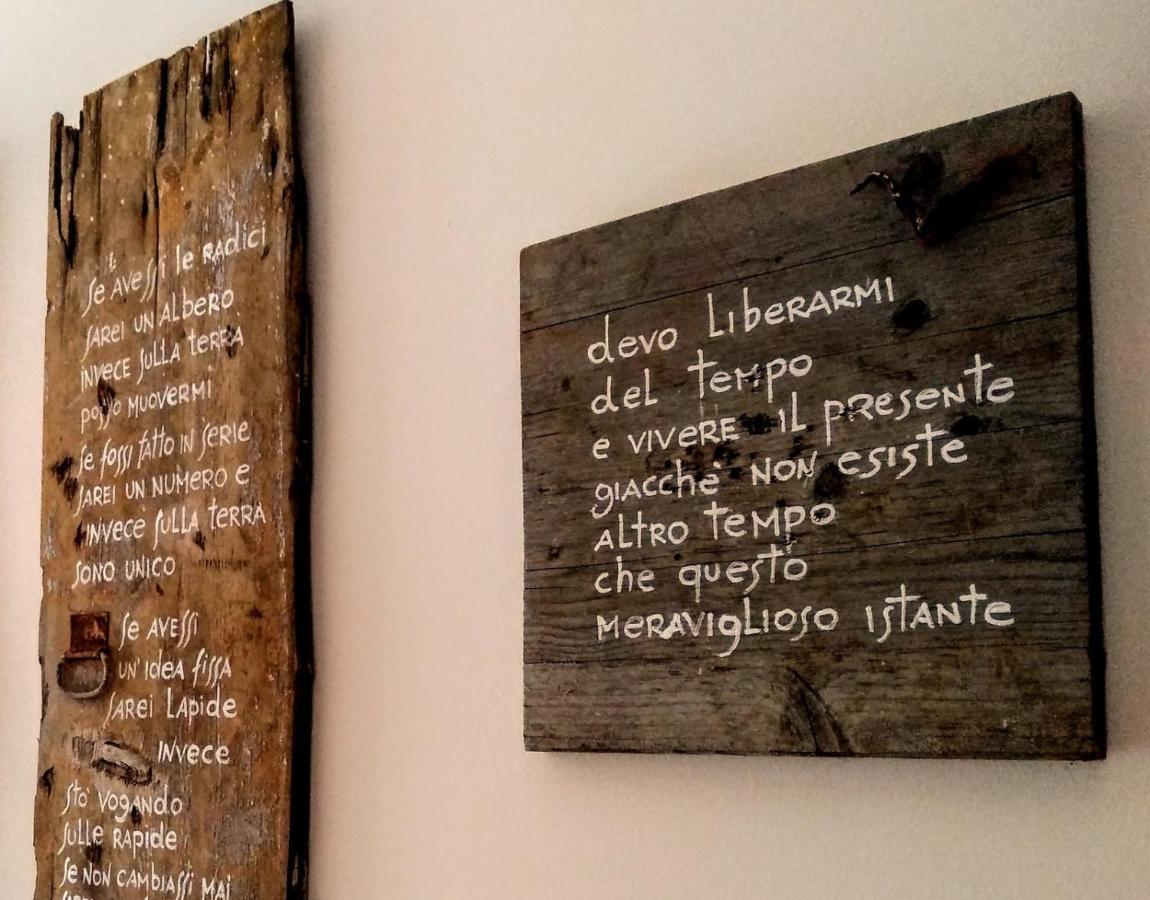 se avessi le radici
sarei un albero
invece sulla terra
posso muovermi
se fossi fatto in serie
sarei un numero e
invece sulla terra
sono unico
se avessi
un'idea fissa
sarei lapide
invece
sto' vogando
sulle rapide
se non cambiassi mai
devo liberarmi
del tempo
e vivere il presente
giacche' non esiste
altro tempo
che questo
meraviglioso istante